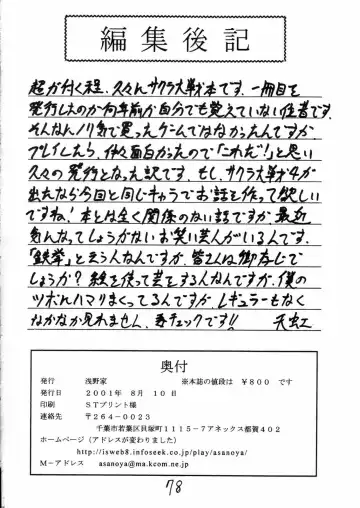 編集後記
超が付く程、久々んサクラ大戦本です。一冊目を
発行したのが何年前か自分でも覚えていない位昔です。
そんなんノリ気で買ったゲームではなかったんですが、
プレイしたら、仲々面白かったので「これだ!」と思い
久々の発行となった訳です。もし、サクラ大戦4が
出たなら今回と同じキャラでお話を作って欲しい
ですね!本とは全く関係のない話ですが最近
気んなってしょうがないお笑い芸人がいるんです。
「鉄拳」と云う人なんですが、皆さんは御存じで
しょうか?絵を使って芸をする人なんですが、僕の
ツボんハマリまくってるんですが、レギュラーもなく
なかなか見れません。要チェックです!!
天虹
奥付
発行 浅野家 ※本誌の値段は ¥800 です
発行日 2001年 8月 10日
印刷 STプリント様
連絡先 〒264-0023
千葉市若葉区貝塚町1115-7アネックス都賀402
ホームページ(アドレスが変わりました)
http://isweb8.infoseek.co.jp/play/asanoya/
M-アドレス asanoya@ma.kcom.ne.jp
78